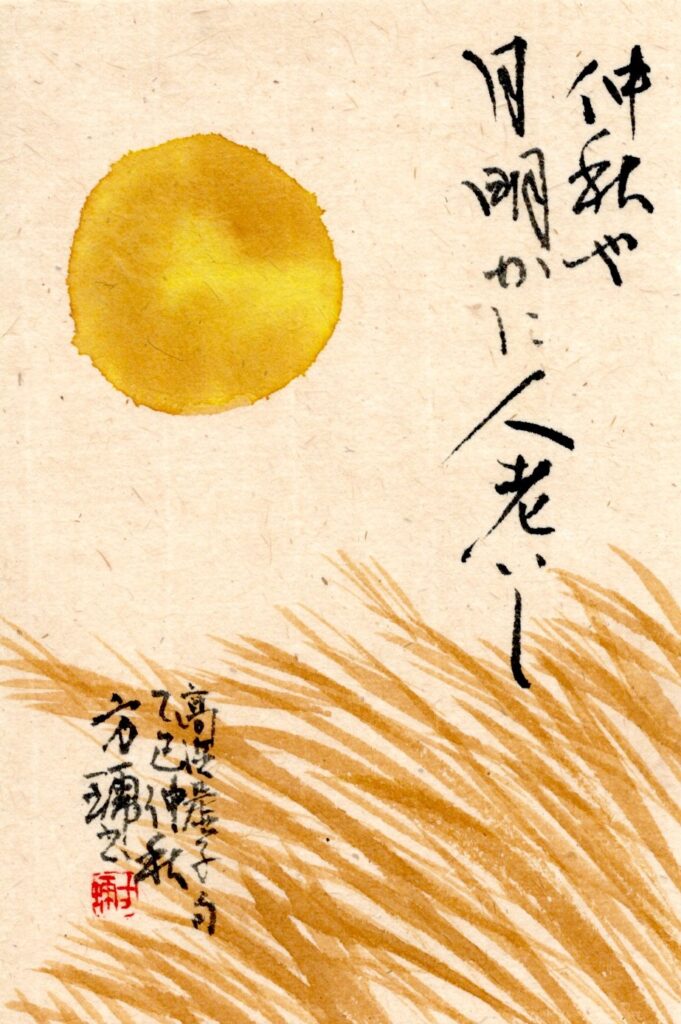 仲秋や
月明かに人老いし
高浜虚子句
乙巳仲秋
方